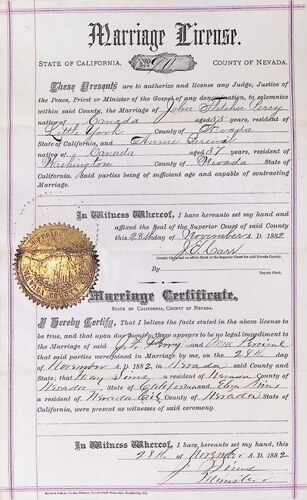 Marriage License.
STATE OF CALIFORNIA, No. 90 COUNTY OF NEVADA.
These Presents are to authorize and license any Judge, Justice
of the Peace, Priest or Minister of the Gospel of any denomination, to solemnize
within said County, the Marriage of John Fletcher Perry
native of Canada aged 35 years, resident of
Little York County of Nevada
State of California, and Annie Percival
native of Canada aged 37 years, resident of
Washington County of Nevada State of
California. Said parties being of sufficient age and capable of contracting
Marriage.
In Witness Whereof, I have hereunto set my hand and
affixed the Seal of the Superior Court of said County
this 28th day of November A.D. 1882
By
Deputy Clerk.
Marriage Certificate.
STATE OF CALIFORNIA, COUNTY OF NEVADA.
I Hereby Certify, That I believe the facts stated in the above license to
be true, and that upon due inquiry there appears to be no legal impediment to
the Marriage of said J. F. Perry and Percival
that said parties were joined in Marriage by me, on the 28th
day of November A.D. 1882 in Nevada said County and
State; that May Sims a resident of Nevada County of
Nevada State of California and Sims
a resident of Nevada City County of Nevada State of
California, were present as witnesses of said ceremony.
In Witness Whereof, I have hereunto set my hand this
28th day of November A.D. 1882
J. Sims
Minister